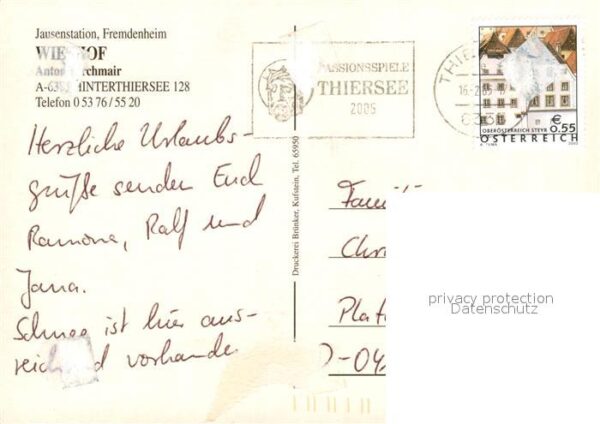 Jausenstation, Fremdenheim
HINTERTHIERSEE 128
Telefon 0 53 76/55 20
PASSIONSSPIELE
THIERSEE
2005
16.2.05
€
0.55
OBERÖSTERREICH STEYR
ÖSTERREICH
Herzliche Urlaubs-
grüße senden Euch
Ramona, Ralf und
Jana.
Schnee ist hier aus-
reichend vorhanden
Druckerei Brünker, Kufstein, Tel. 65950
privacy protection
Datenschutz